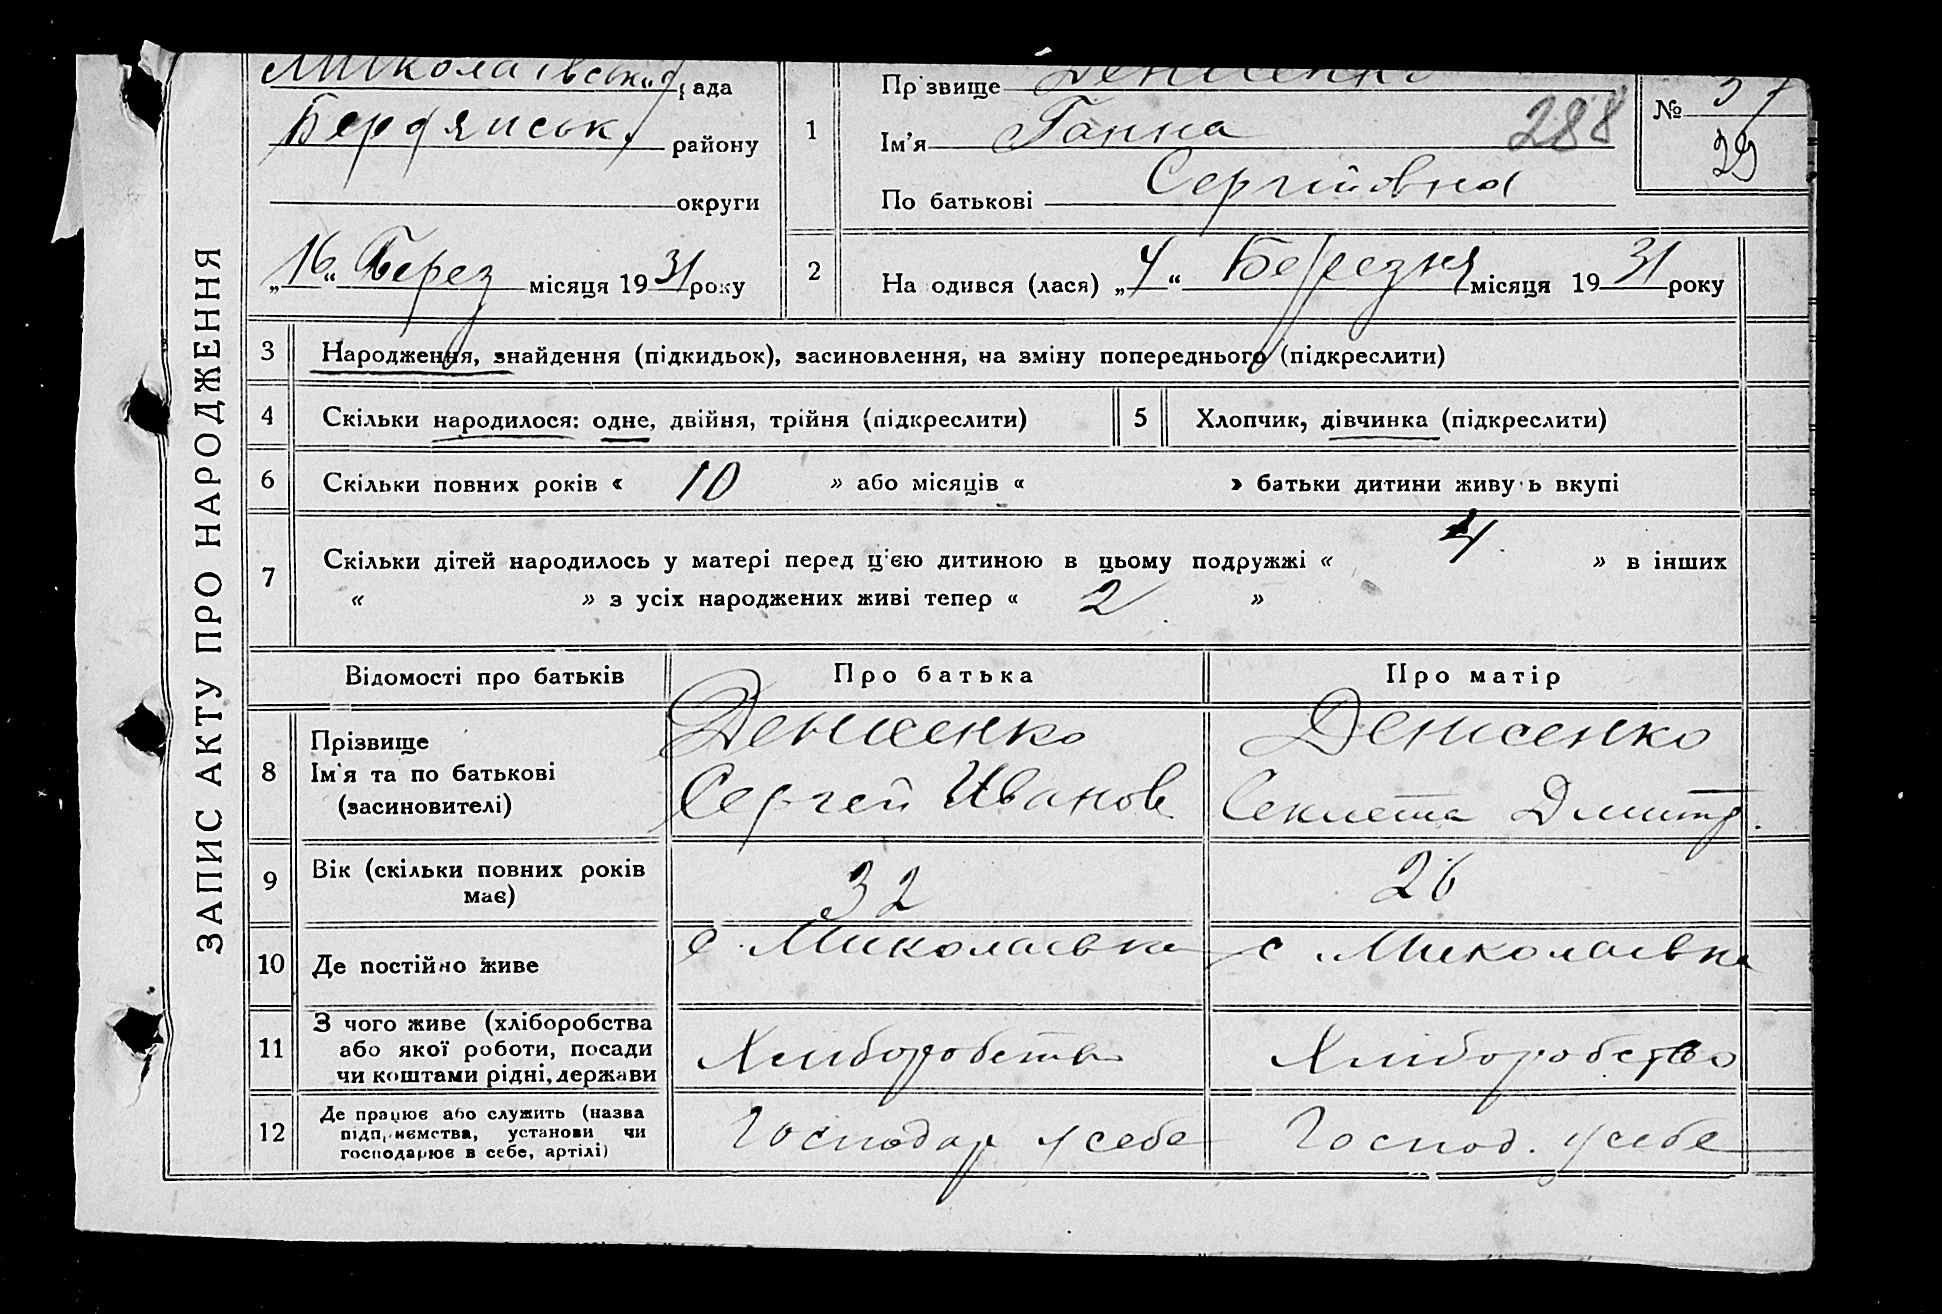 ЗАПИС АКТУ ПРО НАРОДЖЕННЯ
Миколаївськ рада
Бердянськ. району
округи
„16“ Берез місяця 1931 року
1
Прізвище Денисенко
Ім'я Ганна
288
По батькові Сергіївна
№ 37
39
2
На одився (лася) „4“ Березня місяця 1931 року
3 Народження, знайдення (підкидьок), засиновлення, на зміну попереднього (підкреслити)
4 Скільки народилося: одне, двійня, трійня (підкреслити)
5 Хлопчик, дівчинка (підкреслити)
6 Скільки повних років « 10 » або місяців « » батьки дитини живу ь вкупі
7 Скільки дітей народилось у матері перед цією дитиною в цьому подружжі « 4 » в інших
« » з усіх народжених живі тепер « 2 »
Відомості про батьків Про батька Про матір
8 Прізвище
Ім'я та по батькові
(засиновителі)
Денисенко
Сергей Иванов
Денисенко
Секлета Дмитр.
9 Вік (скільки повних років
має)
32
26
10 Де постійно живе
с Миколаевка
с Миколаевка
11 З чого живе (хліборобства
або якої роботи, посади
чи коштами рідні, держави
Хліборобство
Хліборобство
12 Де працює або служить (назва
підприємства, установи чи
господарює в себе, артілі)
Господар у себе
Господ. у себе